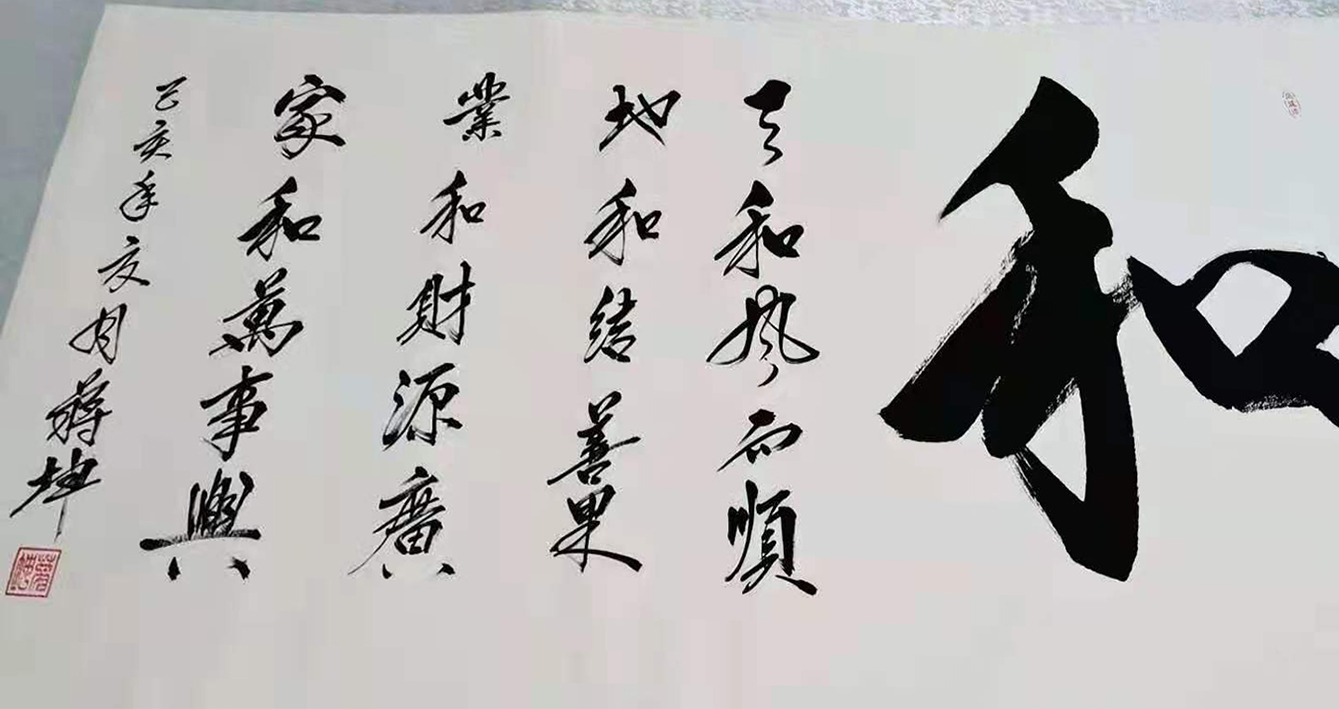 和
天和風雨順
地和結善果
業和財源廣
家和萬事興
己亥年夏月蔣坤